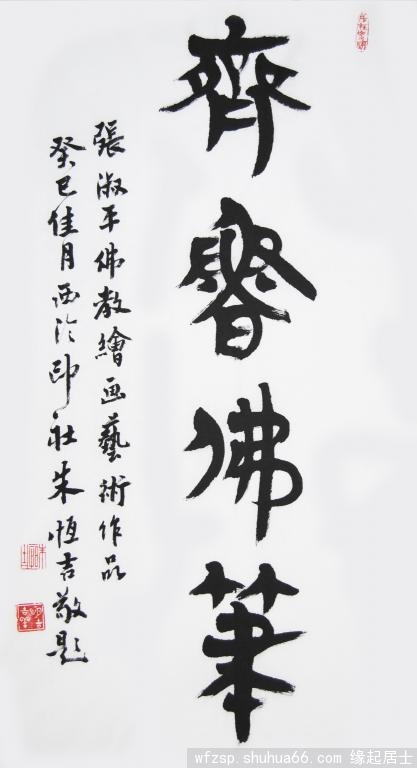 齊佛筆
張淑平佛教繪画藝術作品
癸巳佳月西泠印社朱恒吉敬題
wfzsp.shuhua66.com 缘起居士